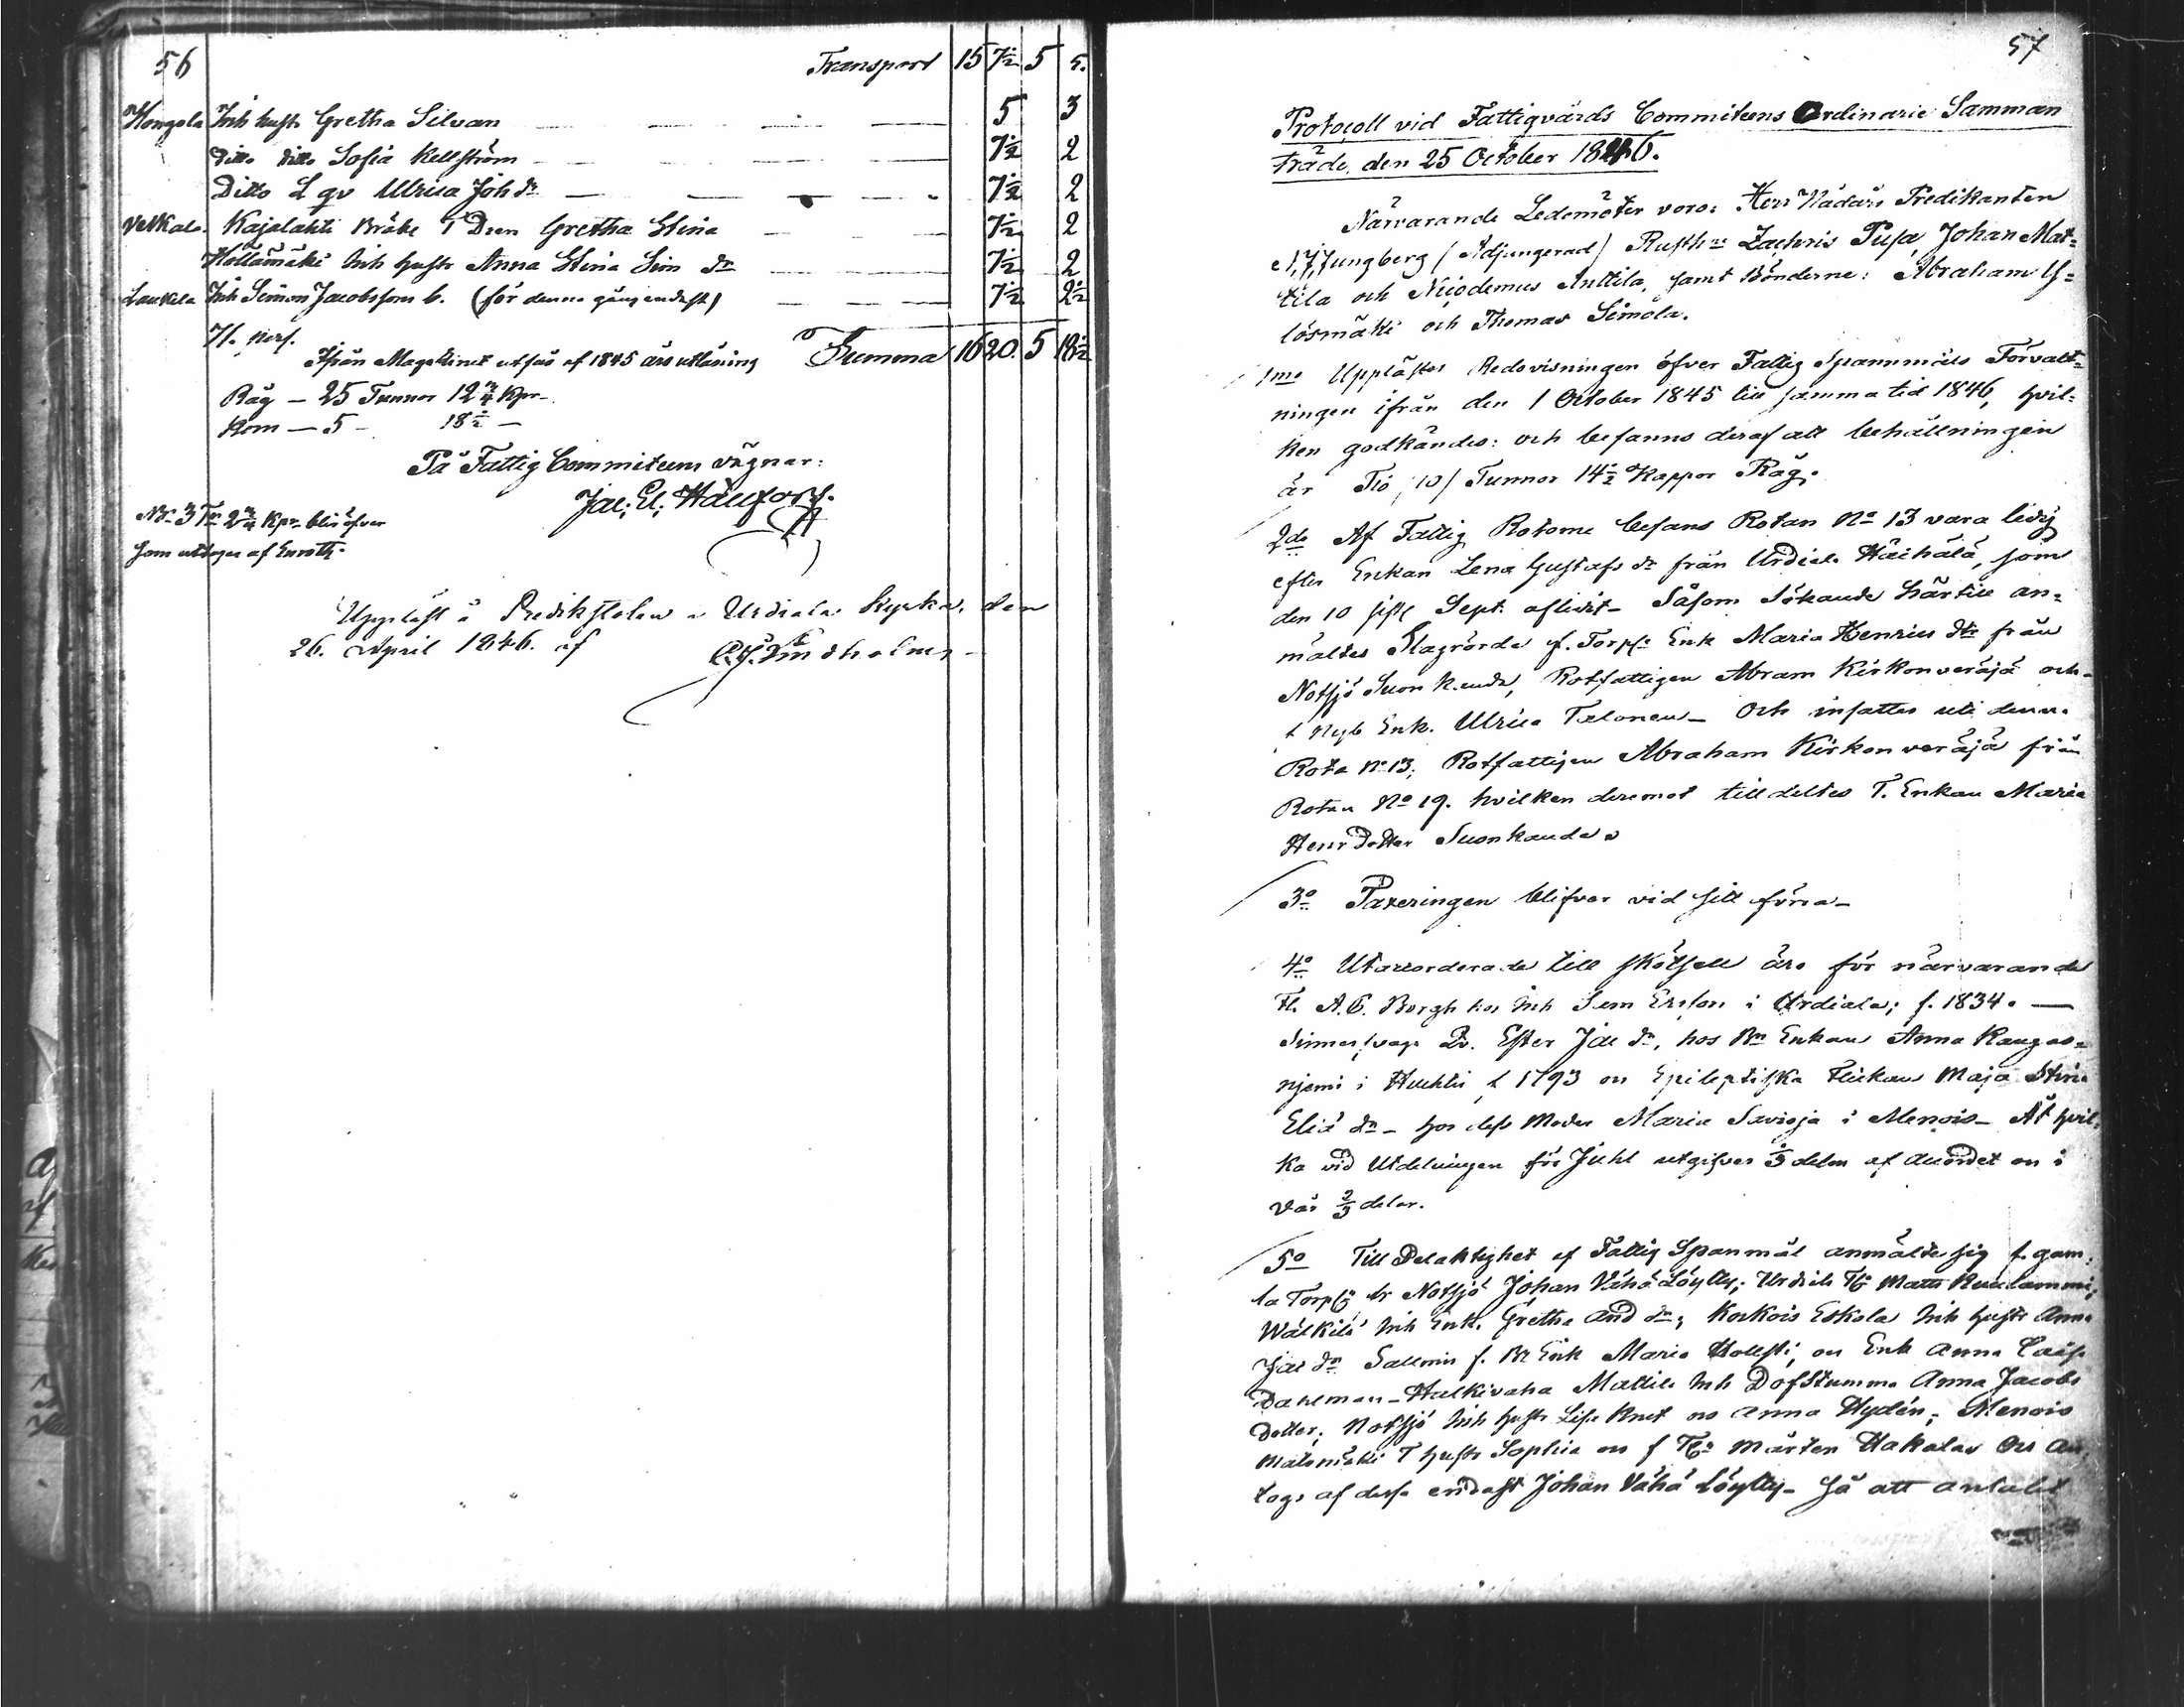 56
Transport 15 7½ 5 5.
Hongola Inh hust: Gretha Silvan 5 3
Ditto ditto Sofia Kellström 7½ 2
Ditto L qv Ulrica Joh dr 7½ 2
Velkala Kajalahti Bräke T Dren Gretha Stina 7½ 2
Hollämäki Inh hustr Anna Stina Sim dr 7½ 2
Laukela Inh Simon Jacobsson b. (för denna gång endast) 7½ 2½
71. pers. Summa 16 20. 5 18½
Ifrån Magazinet utgås af 1845 års utlåning
Råg – 25 Tunnor 12¾ Kpr
Korn – 5 – 18½ –
På Fattig Committeens vägnar:
Jac: El:
Nr 3 Tr 2¾ Kpr blir öfver
som uttages af Enroth.
Uppläst å Predikstolen i Urdiala Kyrka, den
26. April 1846. af Lindholm
57
Protocoll vid Fattigvårds Commiteens Ordinarie Samman
träde, den 25 October 1846.
Närvarande Ledemöter voro: Herr Nådårs Predikanten
Ljungberg / Adjungerad / Rusth: Zachris Pusa, Johan Mat=
tila och Nicodemus Anttila, samt Bönderne: Abraham Y=
lösmäki och Thomas Simola.
1mo Upplästes Redovisningen öfver Fattig Spannmåls Förvalt=
ningen ifrån den 1 October 1845 till samma tid 1846, hvil=
ken godkändes: och befanns deraf att behållningen
är Tio /10/ Tunnor 14½ Kappor Råg.
2do Af Fattig Rotorne befans Rotan No 13 vara ledig
efter Enkan Lena Gustafs dr från Urdiala Häihälä, som
den 10 sistl Sept. aflidit – Såsom Sökande härtill an=
mältes Slagrörda f. Torps Enk Maria Henrics dtr från
Notsjö Suonkanda, Rotfattigen Abram Kirkonveräjä och
f Nyb Enk. Ulrica Talonen – Och infattes uti denna
Rota No 13, Rotfattigen Abraham Kirkonveräjä från
Rotan No 19. hvilken deremot tilldeltes T. Enkan Maria
Henr Dotter Suonkanda.
3o Taxeringen blifver vid sitt förra –
4o Utaccorderade till skötsell äro för närvarande
Fl. A. C. Borgh hos Inh Sim Ersson i Urdiala; f. 1834. –
Sinnessvaga Qv. Ester Jac dr, hos Bn Enkan Anna Kangas=
njemi i Huhti f 1793 on Epileptiska flickan Maja Stina
Eliä dr – hos dess Moder Maria Savioja i Menois – Åt hvil=
ka vid Utdelningen för Juhl utgifves ⅓ delen af anordet on i
Vår ⅔ delar.
5o Till Delaktighet af Fattig Spanmål anmälte sig f. gam=
la Torps fr Notsjö Johan Vähä Löylly; Urdiala Tr Matts Ruutammi,
Wälkilä Inh Enk. Gretha And dr; Korkois Eskola Inh hustr Anna
Jac dr Salmin f. Br Enk Maria Hollsti, on Enk Anna Caisa
Dahlman – Halkivaha Mattila Inh Döfstumma Anna Jacobs
dotter; Notsjö Inh hustr Lisa Knut on Anna Hydén; Menois
Matomäki T hustr Sophia on f Tr Mårten Hakala och an=
togs af dessa endast Johan Vähä Löylly – så att antalet